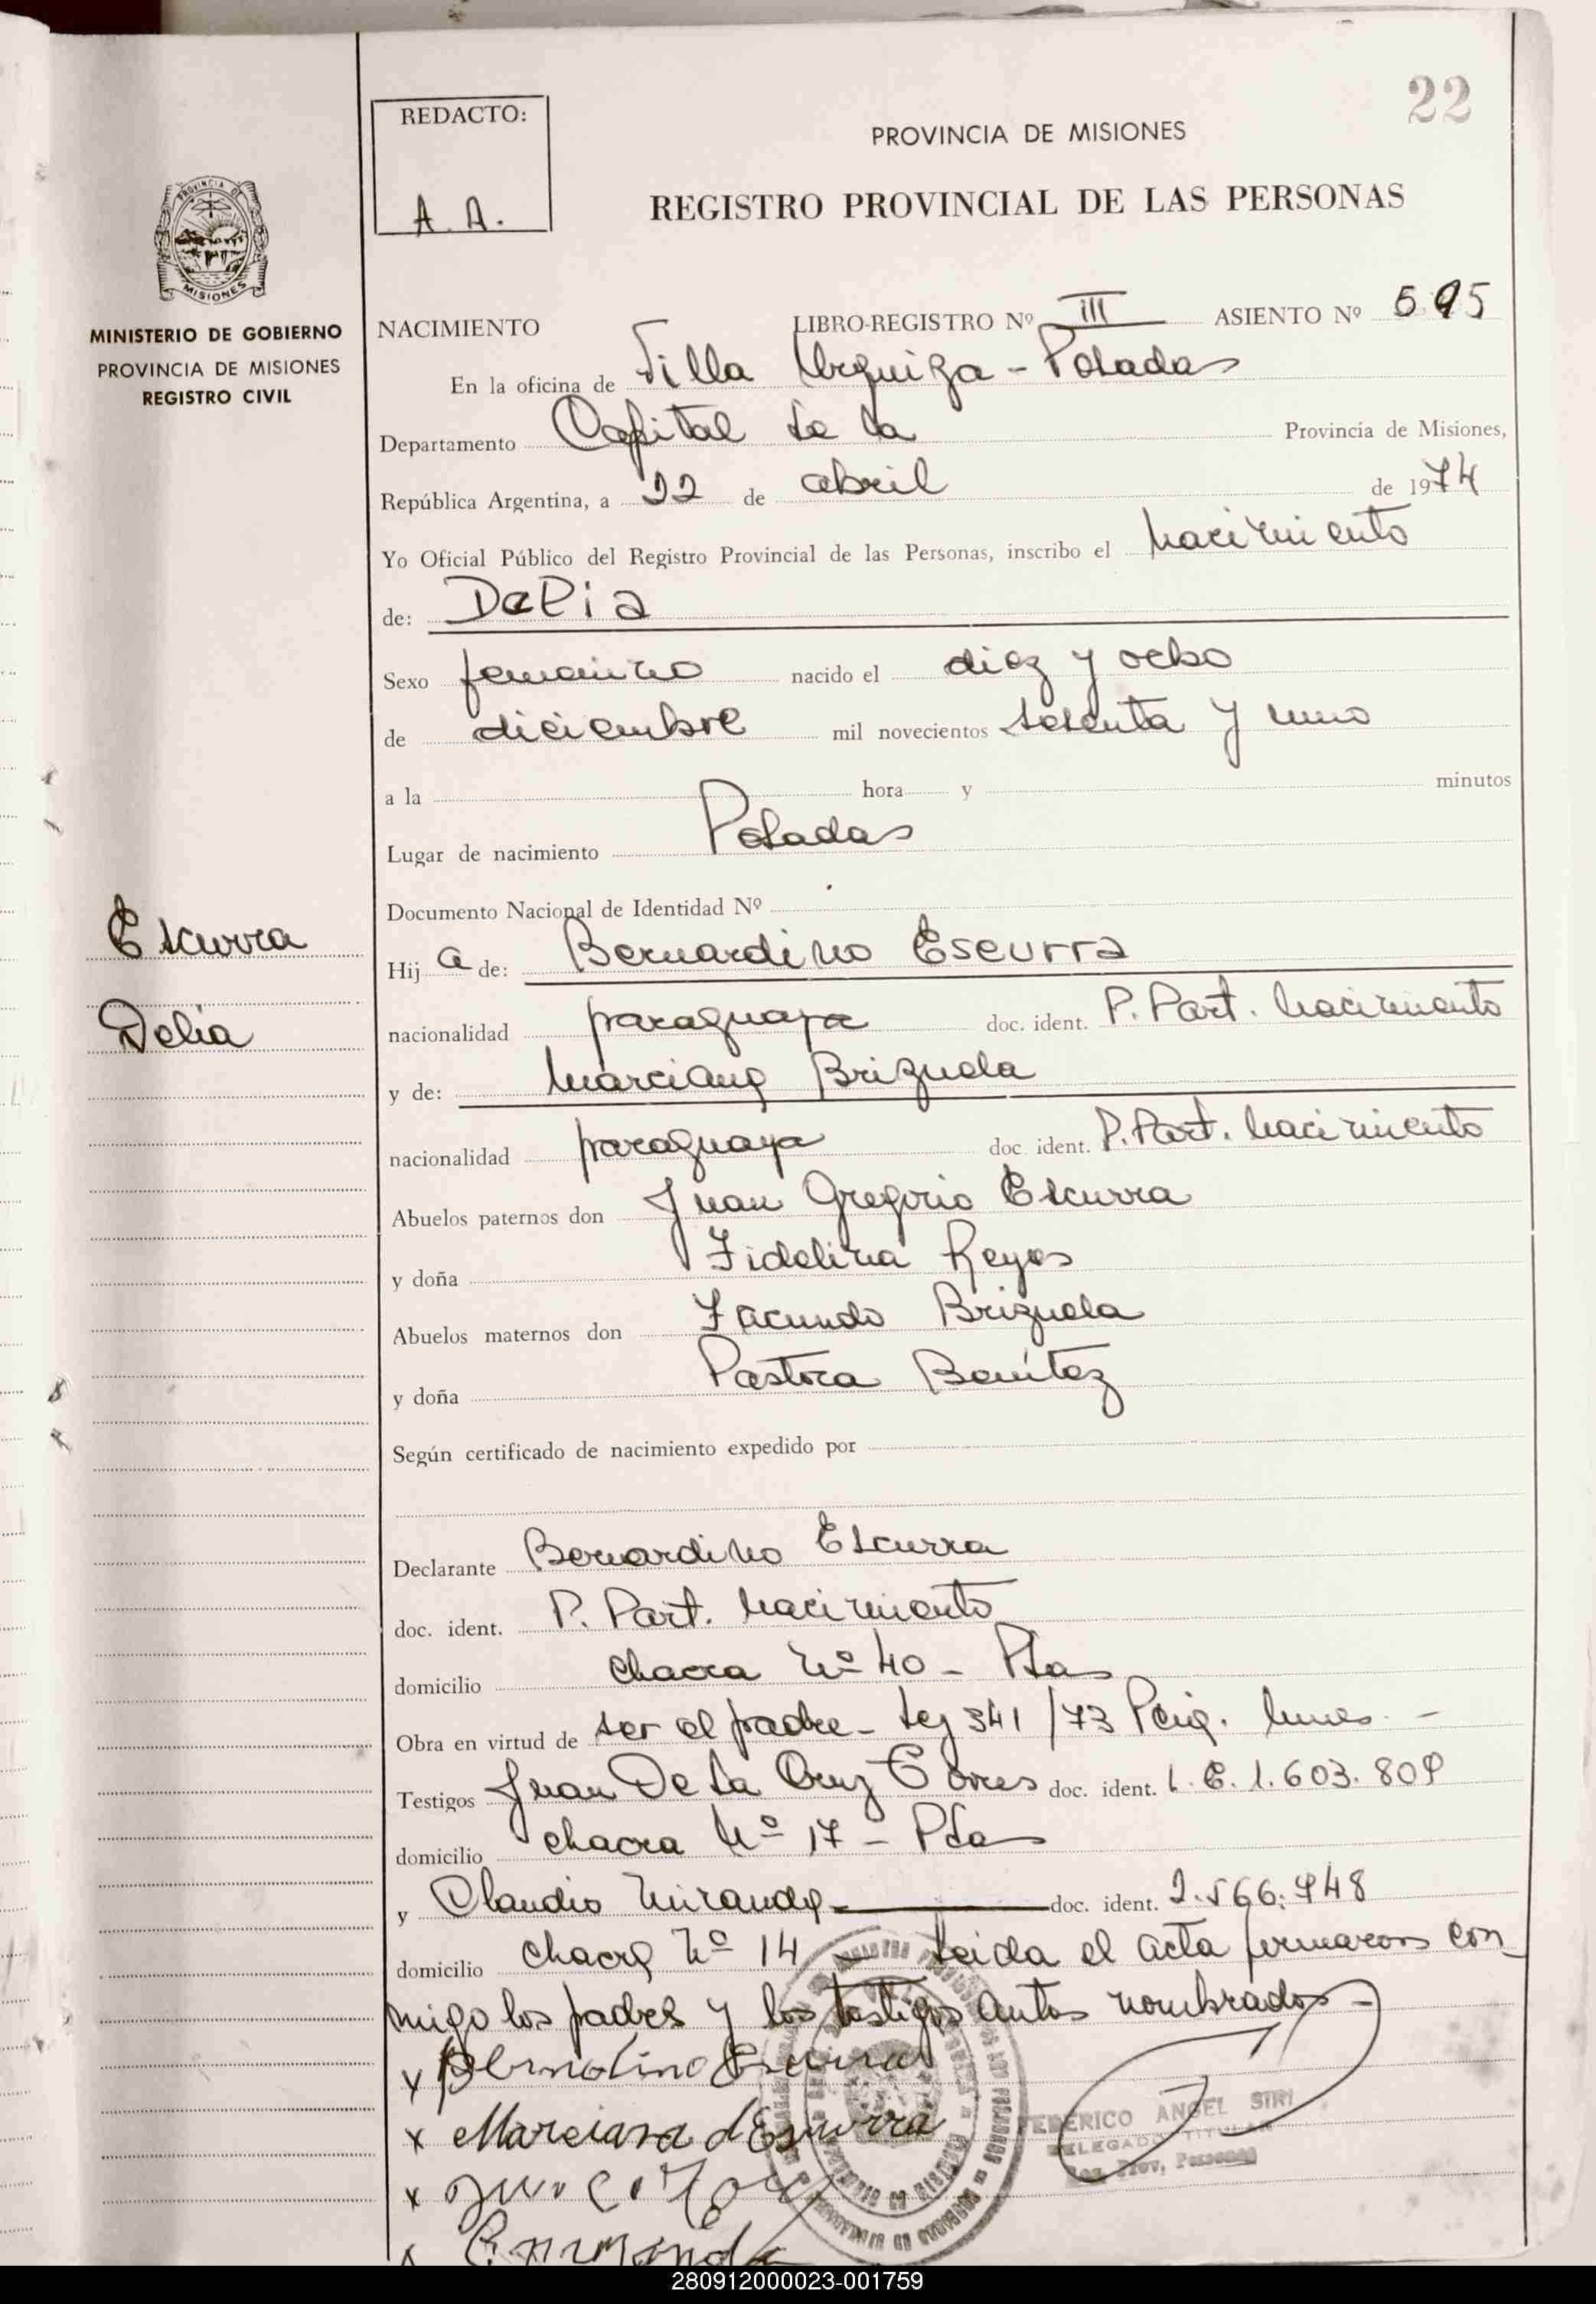 22
REDACTO:
A. A.
PROVINCIA DE MISIONES
REGISTRO PROVINCIAL DE LAS PERSONAS
PROVINCIA DE
MISIONES
MINISTERIO DE GOBIERNO
PROVINCIA DE MISIONES
REGISTRO CIVIL
NACIMIENTO LIBRO-REGISTRO Nº III ASIENTO Nº 595
En la oficina de Villa Urquiza - Posadas
Departamento Capital de la Provincia de Misiones,
República Argentina, a 22 de abril de 1974
Yo Oficial Público del Registro Provincial de las Personas, inscribo el nacimiento
de: Delia
Sexo femenino nacido el diez y ocho
de diciembre mil novecientos sesenta y uno
a la hora y minutos
Lugar de nacimiento Posadas
Documento Nacional de Identidad Nº
Escurra
Delia
Hij a de: Bernardino Escurra
nacionalidad paraguaya doc. ident. P. Part. nacimiento
y de: Marciana Brizuela
nacionalidad paraguaya doc ident. P. Part. nacimiento
Abuelos paternos don Juan Gregorio Escurra
y doña Fidelina Reyes
Abuelos maternos don Facundo Brizuela
y doña Pastora Benítez
Según certificado de nacimiento expedido por
Declarante Bernardino Escurra
doc. ident. P. Part. nacimiento
domicilio chacra Nº 40 - Pdas
Obra en virtud de ser el padre - Ley 341/73
Testigos Juan De La Cruz Torres doc. ident. L. E. 1.603.809
domicilio chacra Nº 17 - Pdas
y Claudio Miranda doc. ident. 2.566.948
domicilio chacra Nº 14 - Leida el acta firmaron con
migo los padres y los testigos antes nombrados -
x Bernardino Escurra
x Marciana d Escurra
x
x
FEDERICO ANGEL SIRI
DELEGADO TITULAR
Reg. Prov. Personas
280912000023-001759